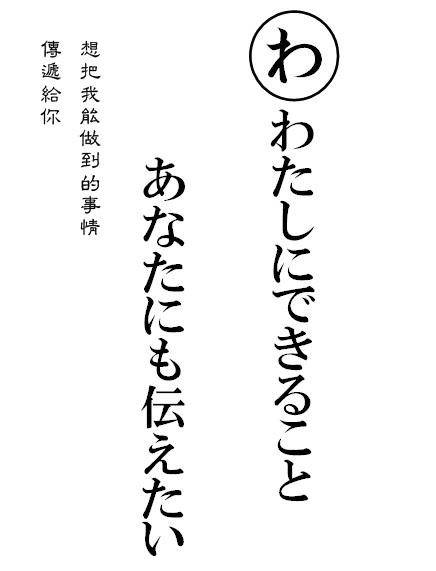 わ
わたしにできること
あなたにも伝えたい
想把我能做到的事情
傳遞給你